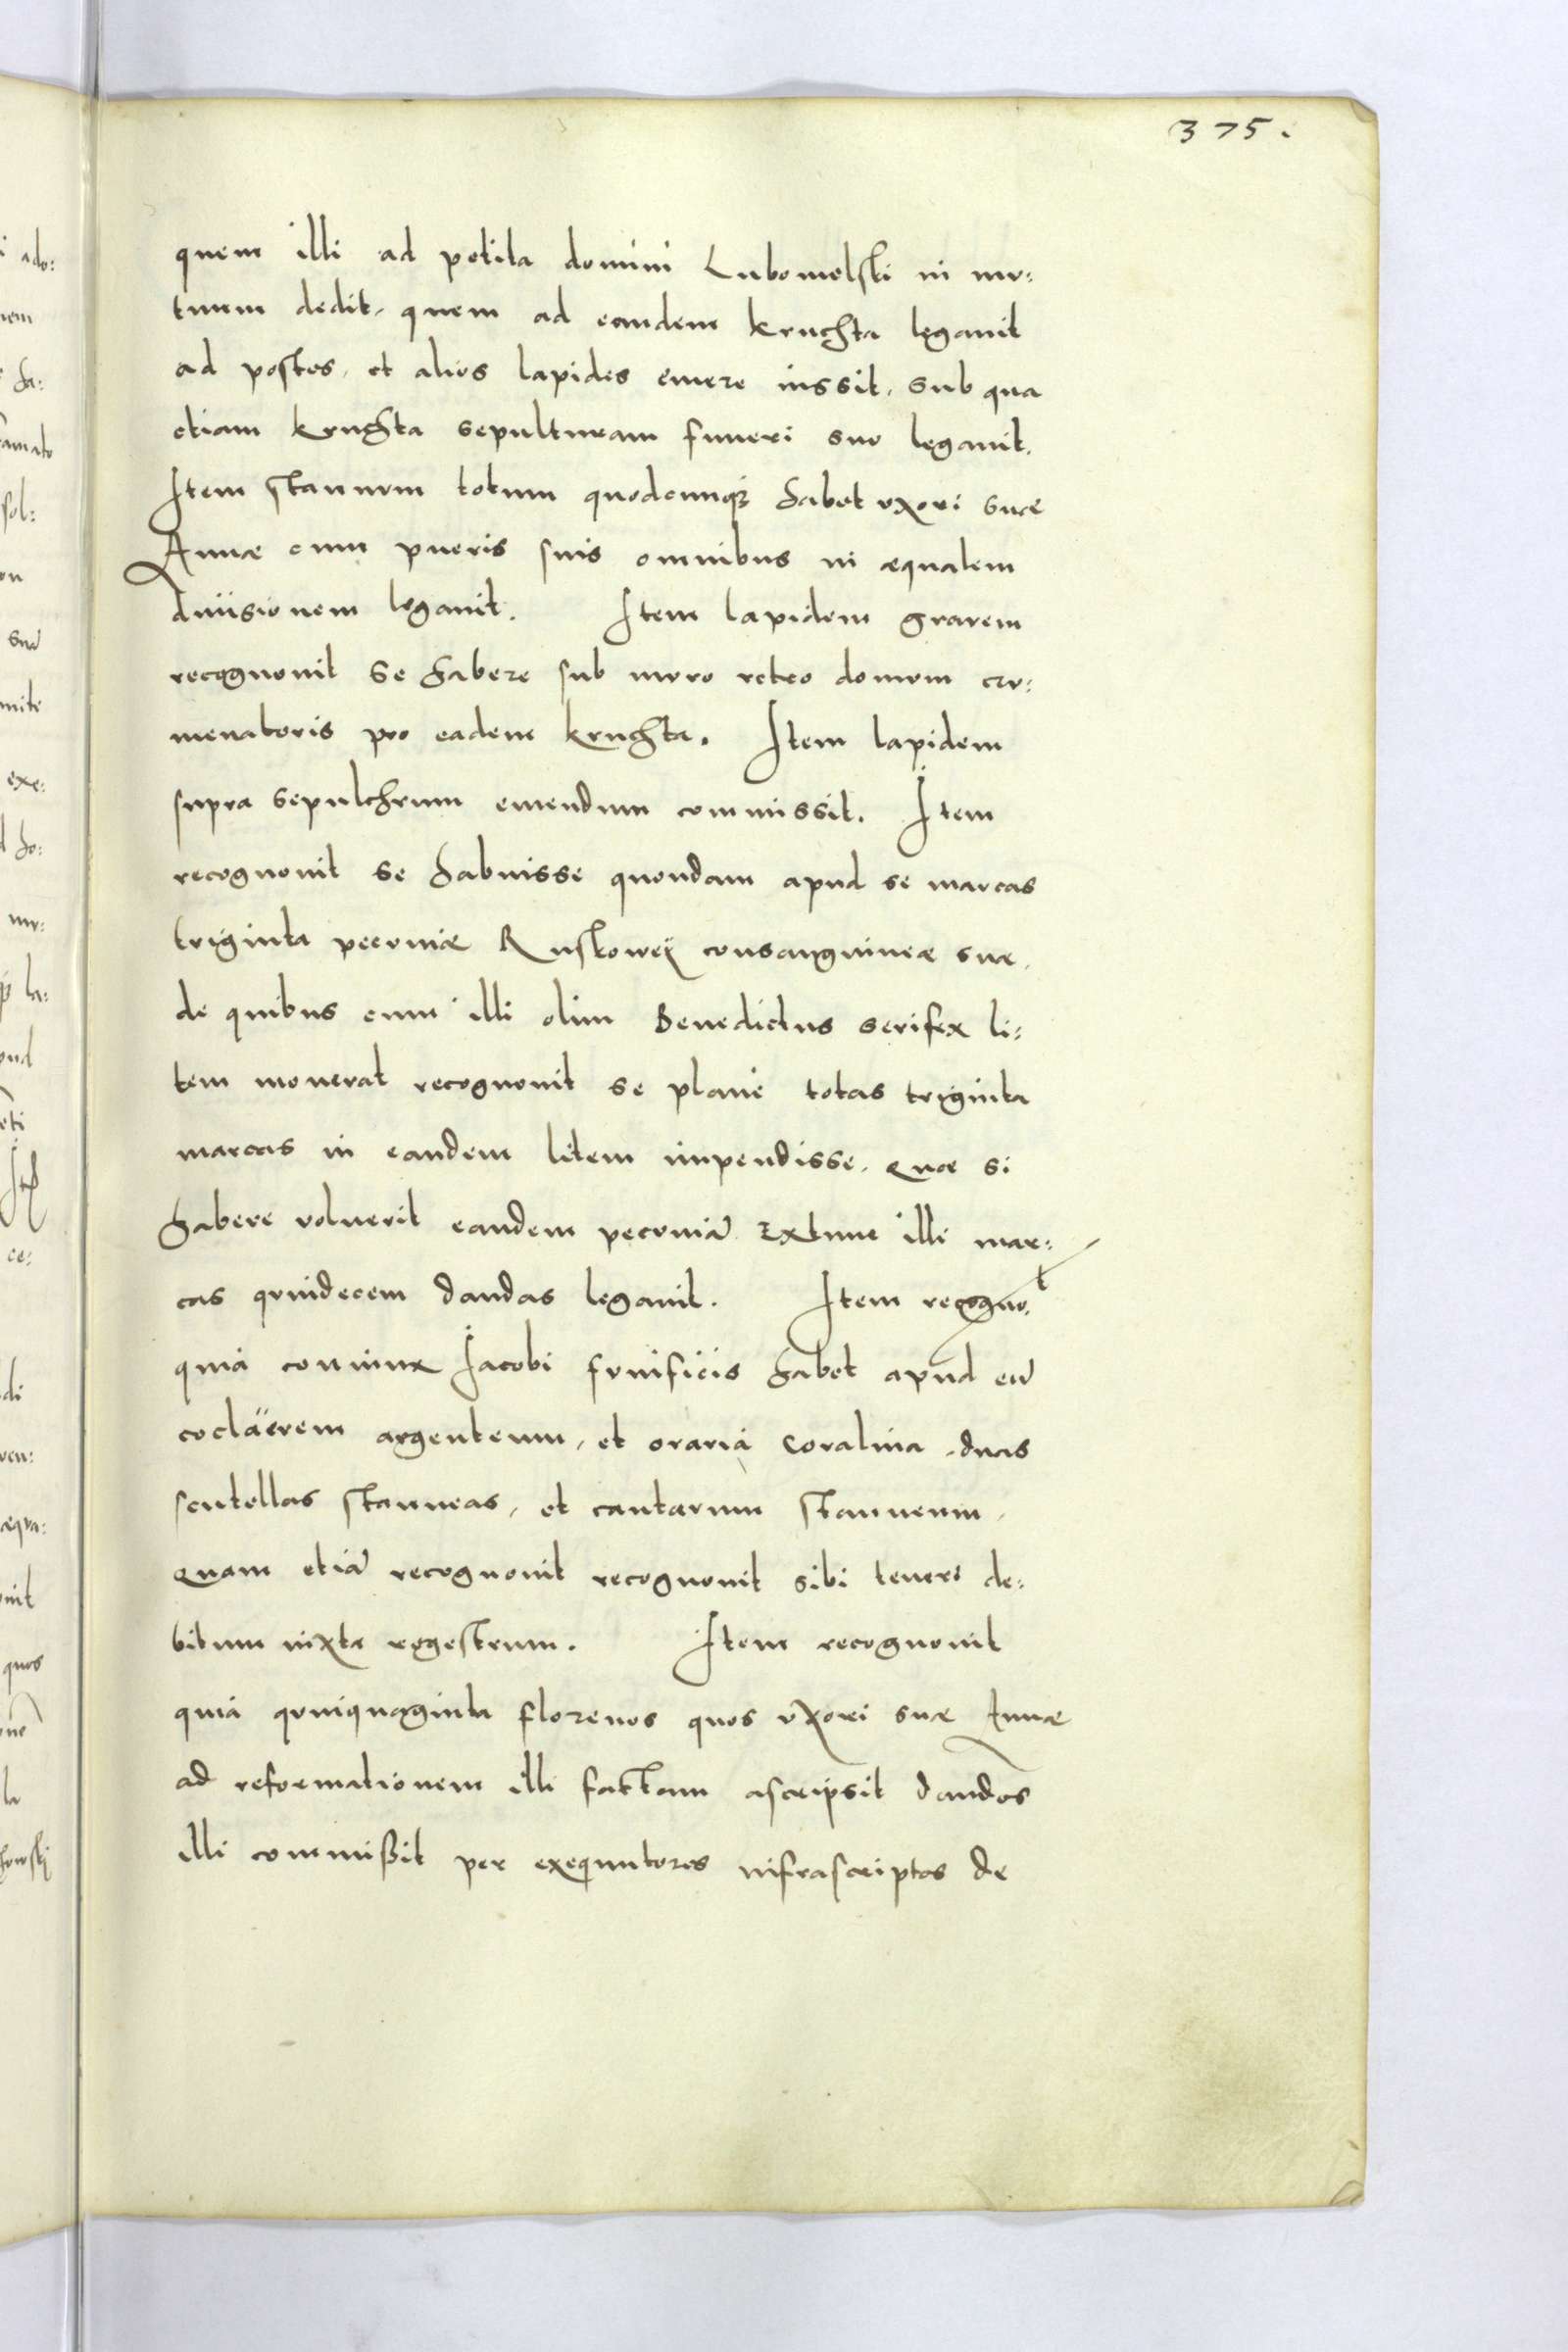 375.
quem illi ad petita domini Lubomelski in mu:
tuum dedit, quem ad eandem kruchta legauit
ad postes, et alios lapides emere iussit, sub qua
etiam kruchta sepulturam funeri suo legauit.
Item stannum totum quodcunq3 habet uxori suae
Annae cum pueris suis omnibus in aequalem
diuisionem legauit. Item lapidem grauem
recognouit se habere sub muro retro domum cru:
menatoris pro eadem kruchta. Item lapidem
supra sepulchrum emendum commissit. Item
recognouit se habuisse quondam apud se marcas
triginta pecuniae Ruskowey consanguineae suae,
de quibus cum illi olim Benedictus serifex li:
tem mouerat recognouit se plane totas triginta
marcas in eandem litem impendisse, quae si
habere voluerit eandem pecuniā Extunc illi mar:
cas quindecem dandas legauit. Item recognot
quia coniunx Jacobi funificis habet apud eū
coclaerem argenteum, et oraria coralina duas
scutellas stanneas, et cantarum stanneum,
quam etiā recognouit recognouit sibi teneri de:
bitum iuxta regestrum. Item recognouit
quia quinquaginta florenos quos uxori suae Annae
ad reformationem illi factam ascripsit dandos
illi commißit per exequutores infrascriptos de
ado:
nem
ha:
sol:
suā
exe:
ho:
mu:
la:
ce:
di
aequa:
quos
la